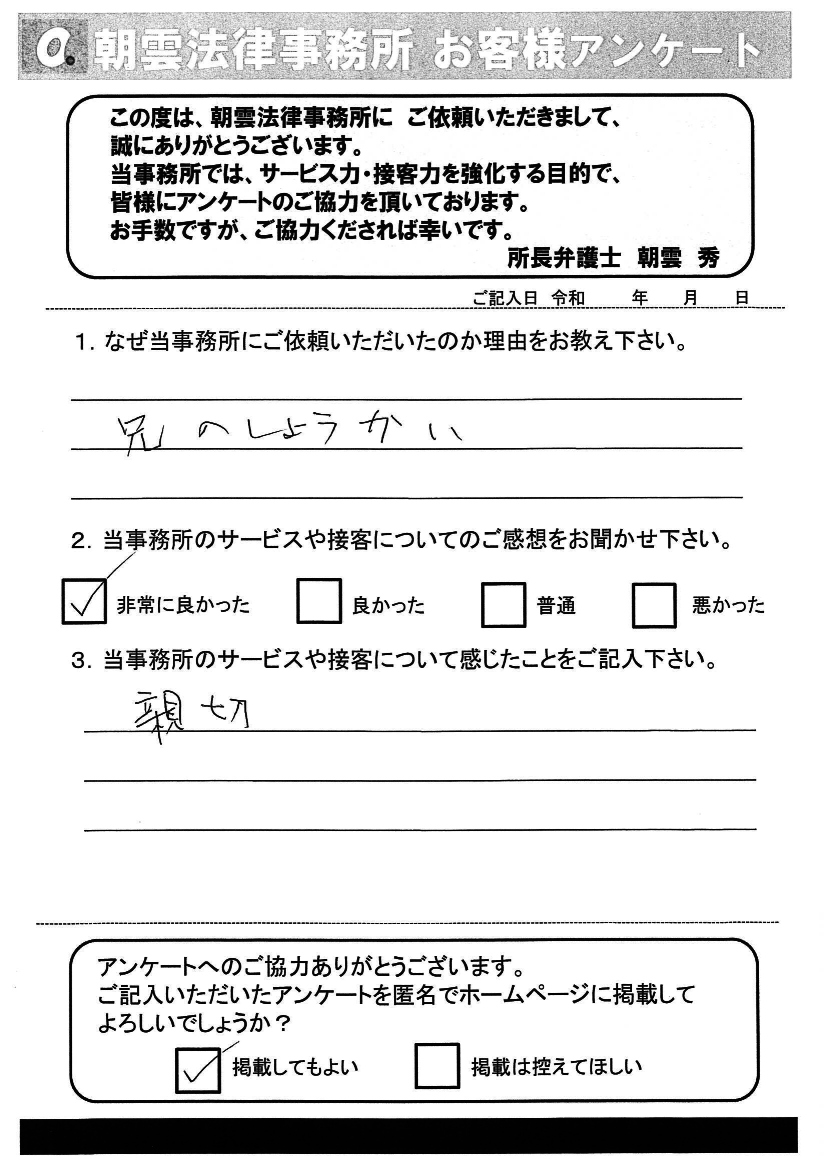 a. 朝雲法律事務所 お客様アンケート
この度は、朝雲法律事務所に ご依頼いただきまして、
誠にありがとうございます。
当事務所では、サービス力・接客力を強化する目的で、
皆様にアンケートのご協力を頂いております。
お手数ですが、ご協力くだされば幸いです。
所長弁護士 朝雲 秀
ご記入日 令和 年 月 日
1. なぜ当事務所にご依頼いただいたのか理由をお教え下さい。
兄のしょうかい
2. 当事務所のサービスや接客についてのご感想をお聞かせ下さい。
✓ 非常に良かった □ 良かった □ 普通 □ 悪かった
3. 当事務所のサービスや接客について感じたことをご記入下さい。
親切
アンケートへのご協力ありがとうございます。
ご記入いただいたアンケートを匿名でホームページに掲載して
よろしいでしょうか？
✓ 掲載してもよい □ 掲載は控えてほしい